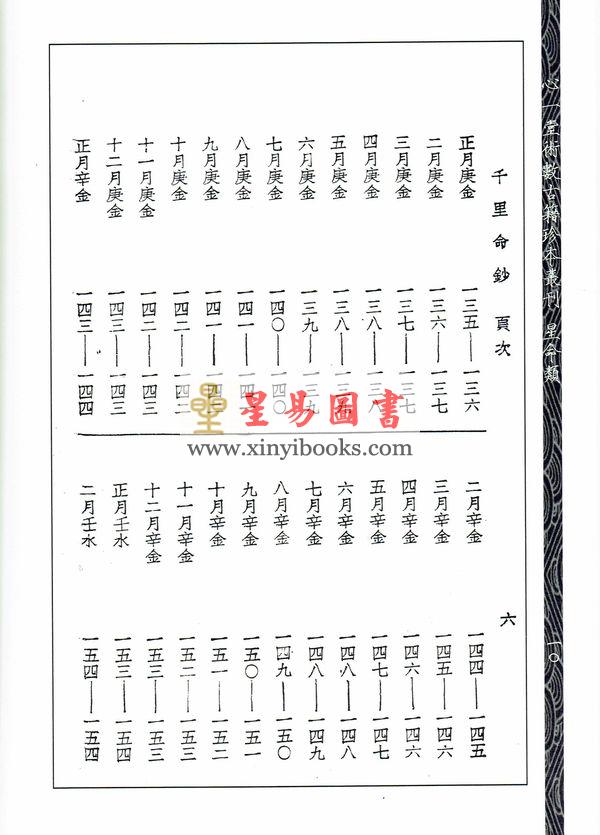 心一堂術數古籍珍本叢刊 星命類
一〇
千里命鈔 頁次
六
正月庚金 一三五——一三六
二月庚金 一三六——一三七
三月庚金 一三七——一三七
四月庚金 一三八——一三八
五月庚金 一三八——一三九
六月庚金 一三九——一三九
七月庚金 一四〇——一四〇
八月庚金 一四一——一四
九月庚金 一四一——一四二
十月庚金 一四二——一四二
十一月庚金 一四二——一四三
十二月庚金 一四三——一四三
正月辛金 一四三——一四四
二月辛金 一四四——一四五
三月辛金 一四五——一四六
四月辛金 一四六——一四六
五月辛金 一四七——一四七
六月辛金 一四八——一四八
七月辛金 一四八——一四九
八月辛金 一四九——一五〇
九月辛金 一五〇——一五一
十月辛金 一五一——一五二
十一月辛金 一五二——一五三
十二月辛金 一五三——一五三
正月壬水 一五三——一五四
二月壬水 一五四——一五四
星易圖書
www.xinyibooks.com